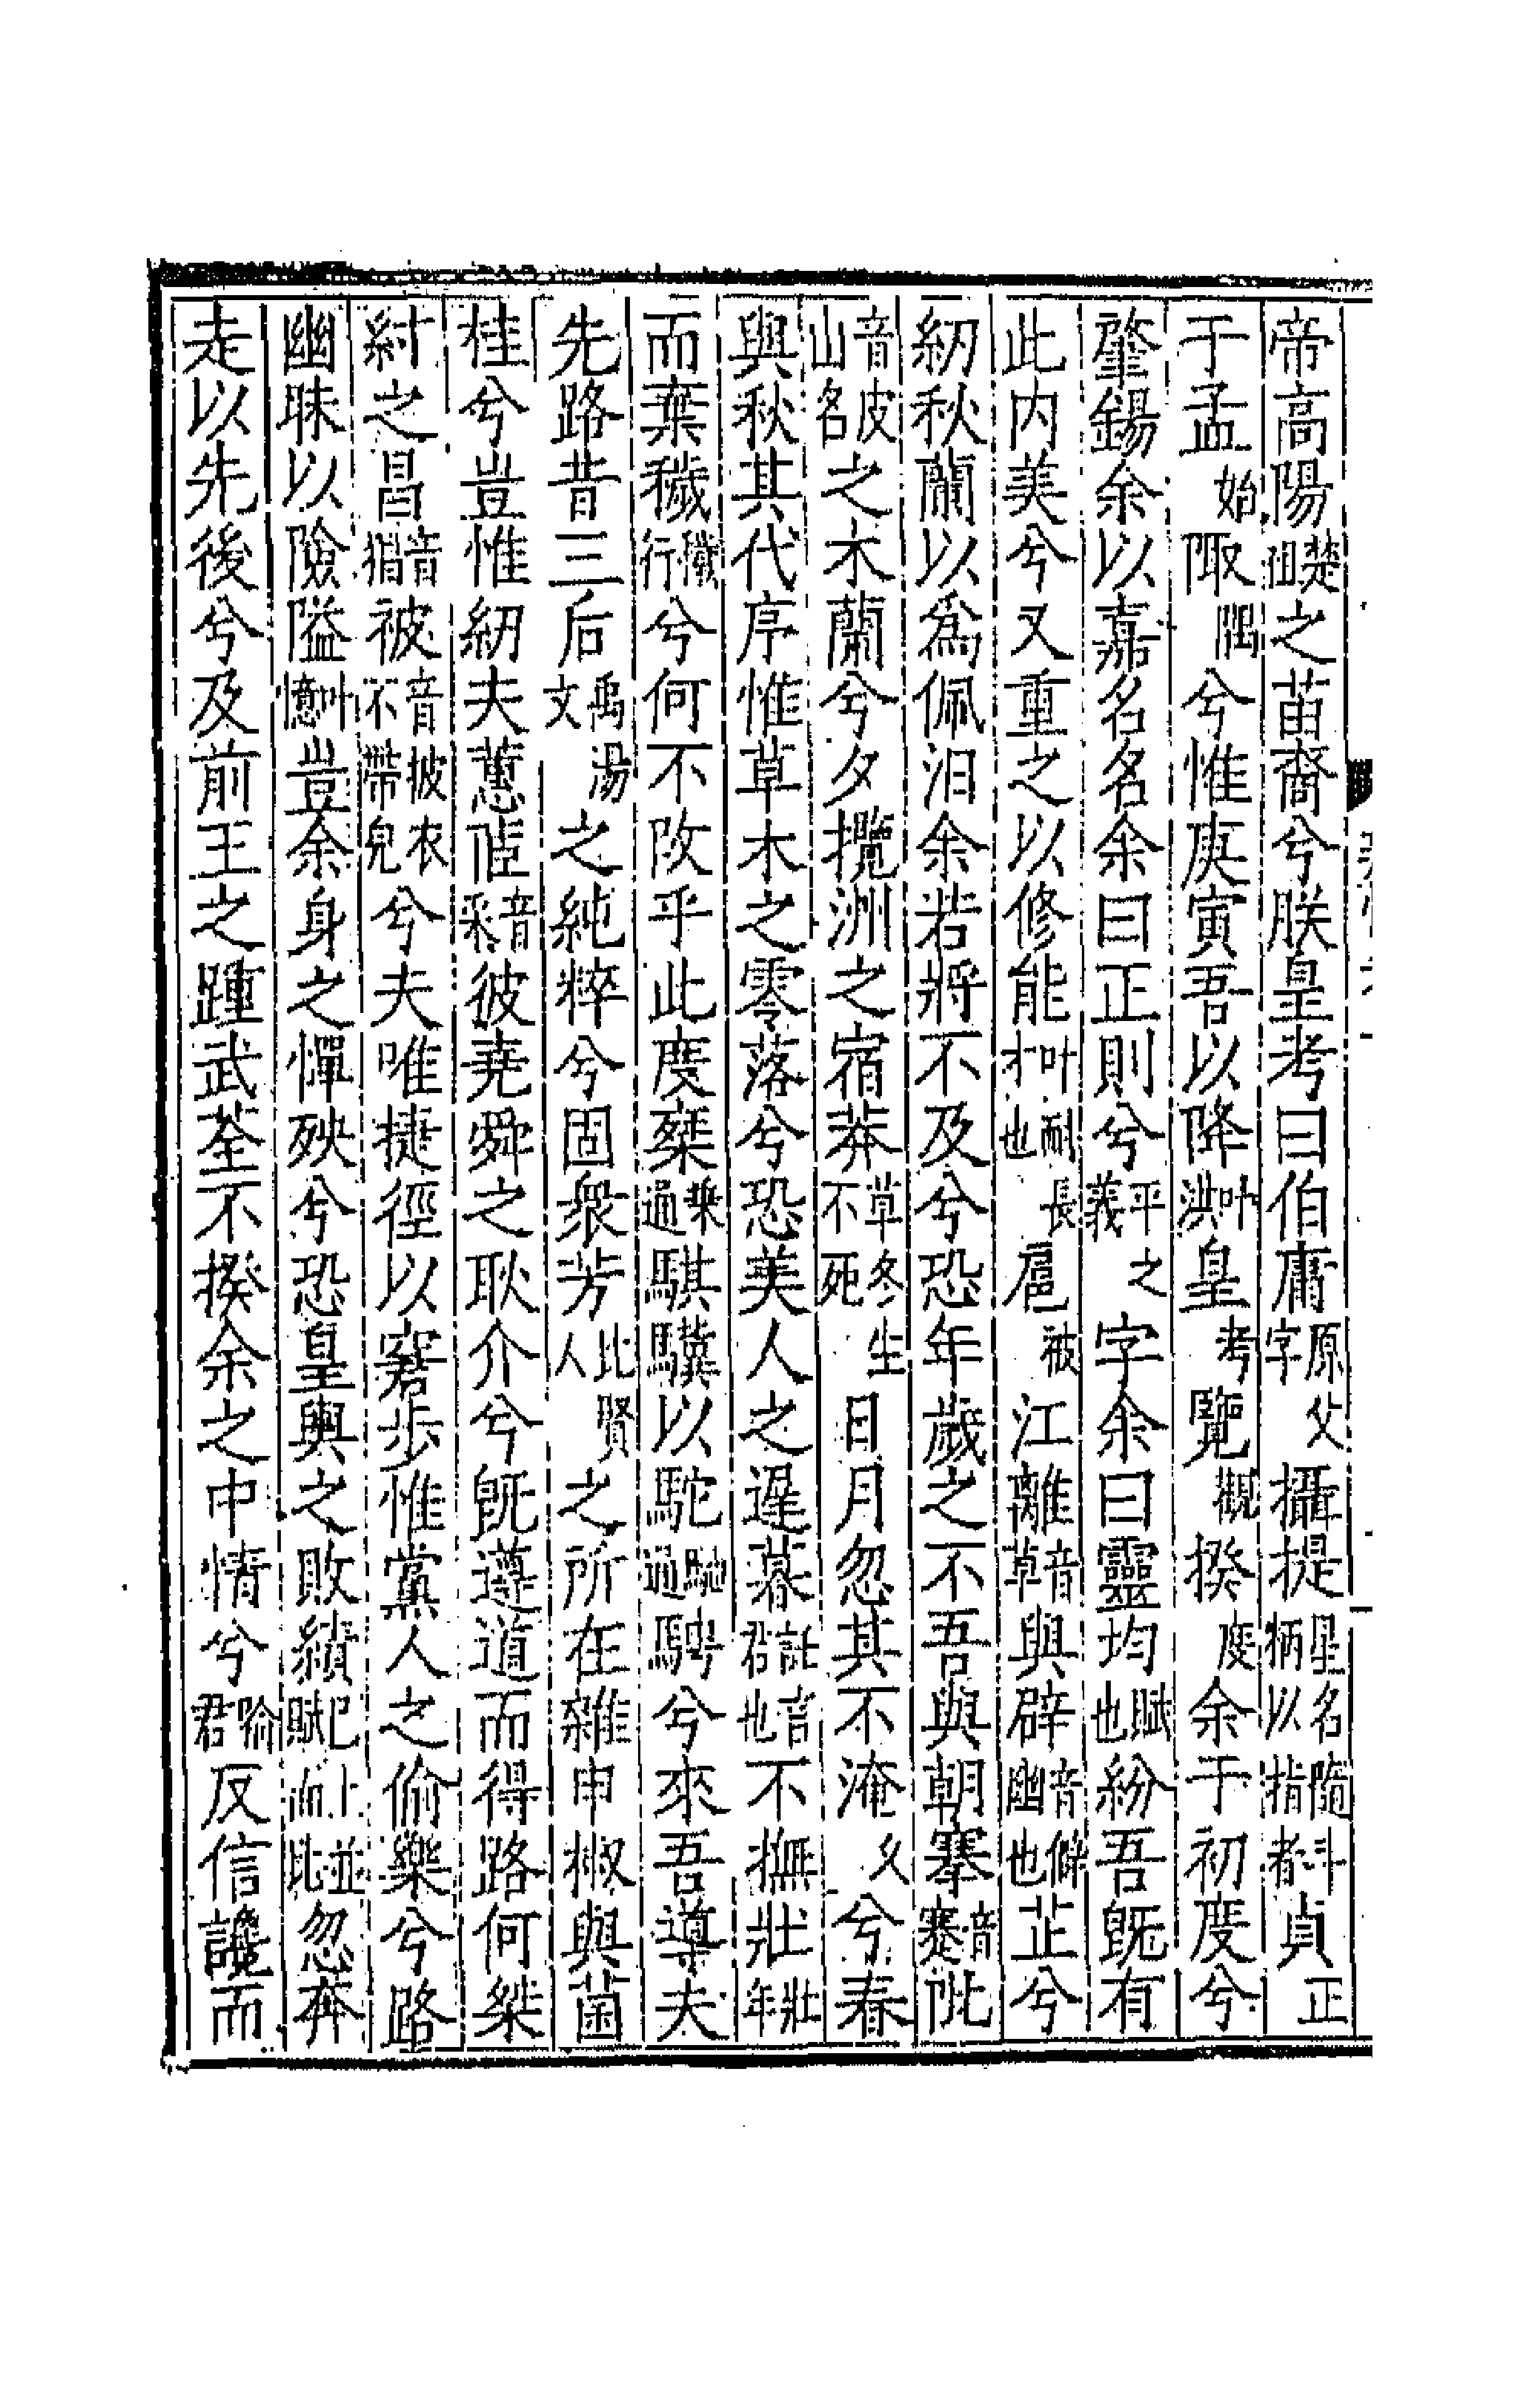 帝高陽楚祖之苗裔兮朕皇考曰伯庸原父字攝提星名隨斗柄以指者貞正
于孟始陬隅兮惟庚寅吾以降叶洪皇考覽觀揆度余于初度兮
肇錫余以嘉名名余曰正則兮平之義字余曰靈均賦也紛吾旣有
此內美兮又重之以修能叶耐才也長扈被江離音草與辟音幽僻也芷兮
紉秋蘭以爲佩汨余若將不及兮恐年歲之不吾與朝搴音蹇阰
音皮山名之木蘭兮夕攬洲之宿莽草冬生不死日月忽其不淹久兮春
與秋其代序惟草木之零落兮恐美人之遲暮託言君也不撫壯壯年
而棄穢穢行兮何不改乎此度椉乗通騏驥以駝馳通騁兮來吾導夫
先路昔三后禹湯文之純粹兮固衆芳比賢人之所在雜申椒與菌
桂兮豈惟紉夫蕙茝音采彼堯舜之耿介兮旣遵道而得路何桀
紂之昌音猖被音披衣不帶皃兮夫唯捷徑以窘步惟黨人之偷樂兮路
幽昧以險隘叶憶豈余身之憚殃兮恐皇輿之敗績巳上並賦而比忽奔
走以先後兮及前王之踵武荃不揆余之中情兮喻君反信讒而